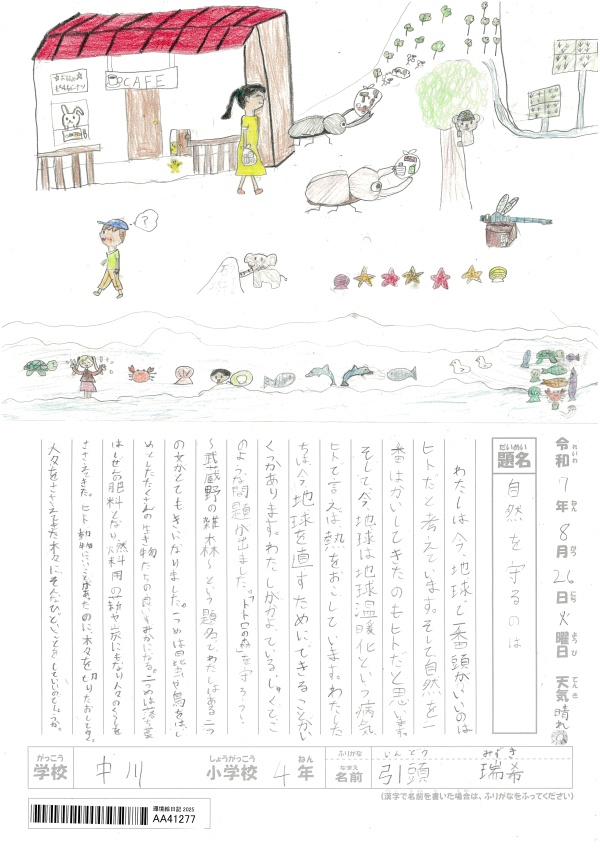 CAFE
?
令和7年8月26日火曜日 天気 晴れ
題名 自然を守るのは
わたしは今、地球で一番頭がいいのは
ヒトだと考えています。そして自然を一
番はかいしてきたのもヒトだと思います。
そして今、地球は地球温暖化という病気、
ヒトで言えば熱をおこしています。わたした
ちは今、地球を直すためにできることがい
くつかあります。わたしがかよっている、じゅくでこ
のような問題が出ました。「トトロの森」を守ろう、
〜武蔵野の雑木林〜という題名で、わたしはある二つ
の文がとてもきになりました。一つめは昆虫や鳥をはじ
めとしたたくさんの生き物たちの良いすみかになる。二つめは落ち葉
はしぜん肥料となり、燃料用の薪や炭にもなり人々のくらしを
ささえてきた。ヒト、動物にいいことがあったのに、木々を切りたおしてます。
人々をささえてきた木々にそんなひどいことをしていいのでしょうか。
がっこう 学校 中川 しょうがっこう 小学校 4 ねん 年 ふりがな いんどう みずき
なまえ 名前 引頭 瑞希
(漢字で名前を書いた場合は、ふりがなをふってください)
環境絵日記 2025
AA41277